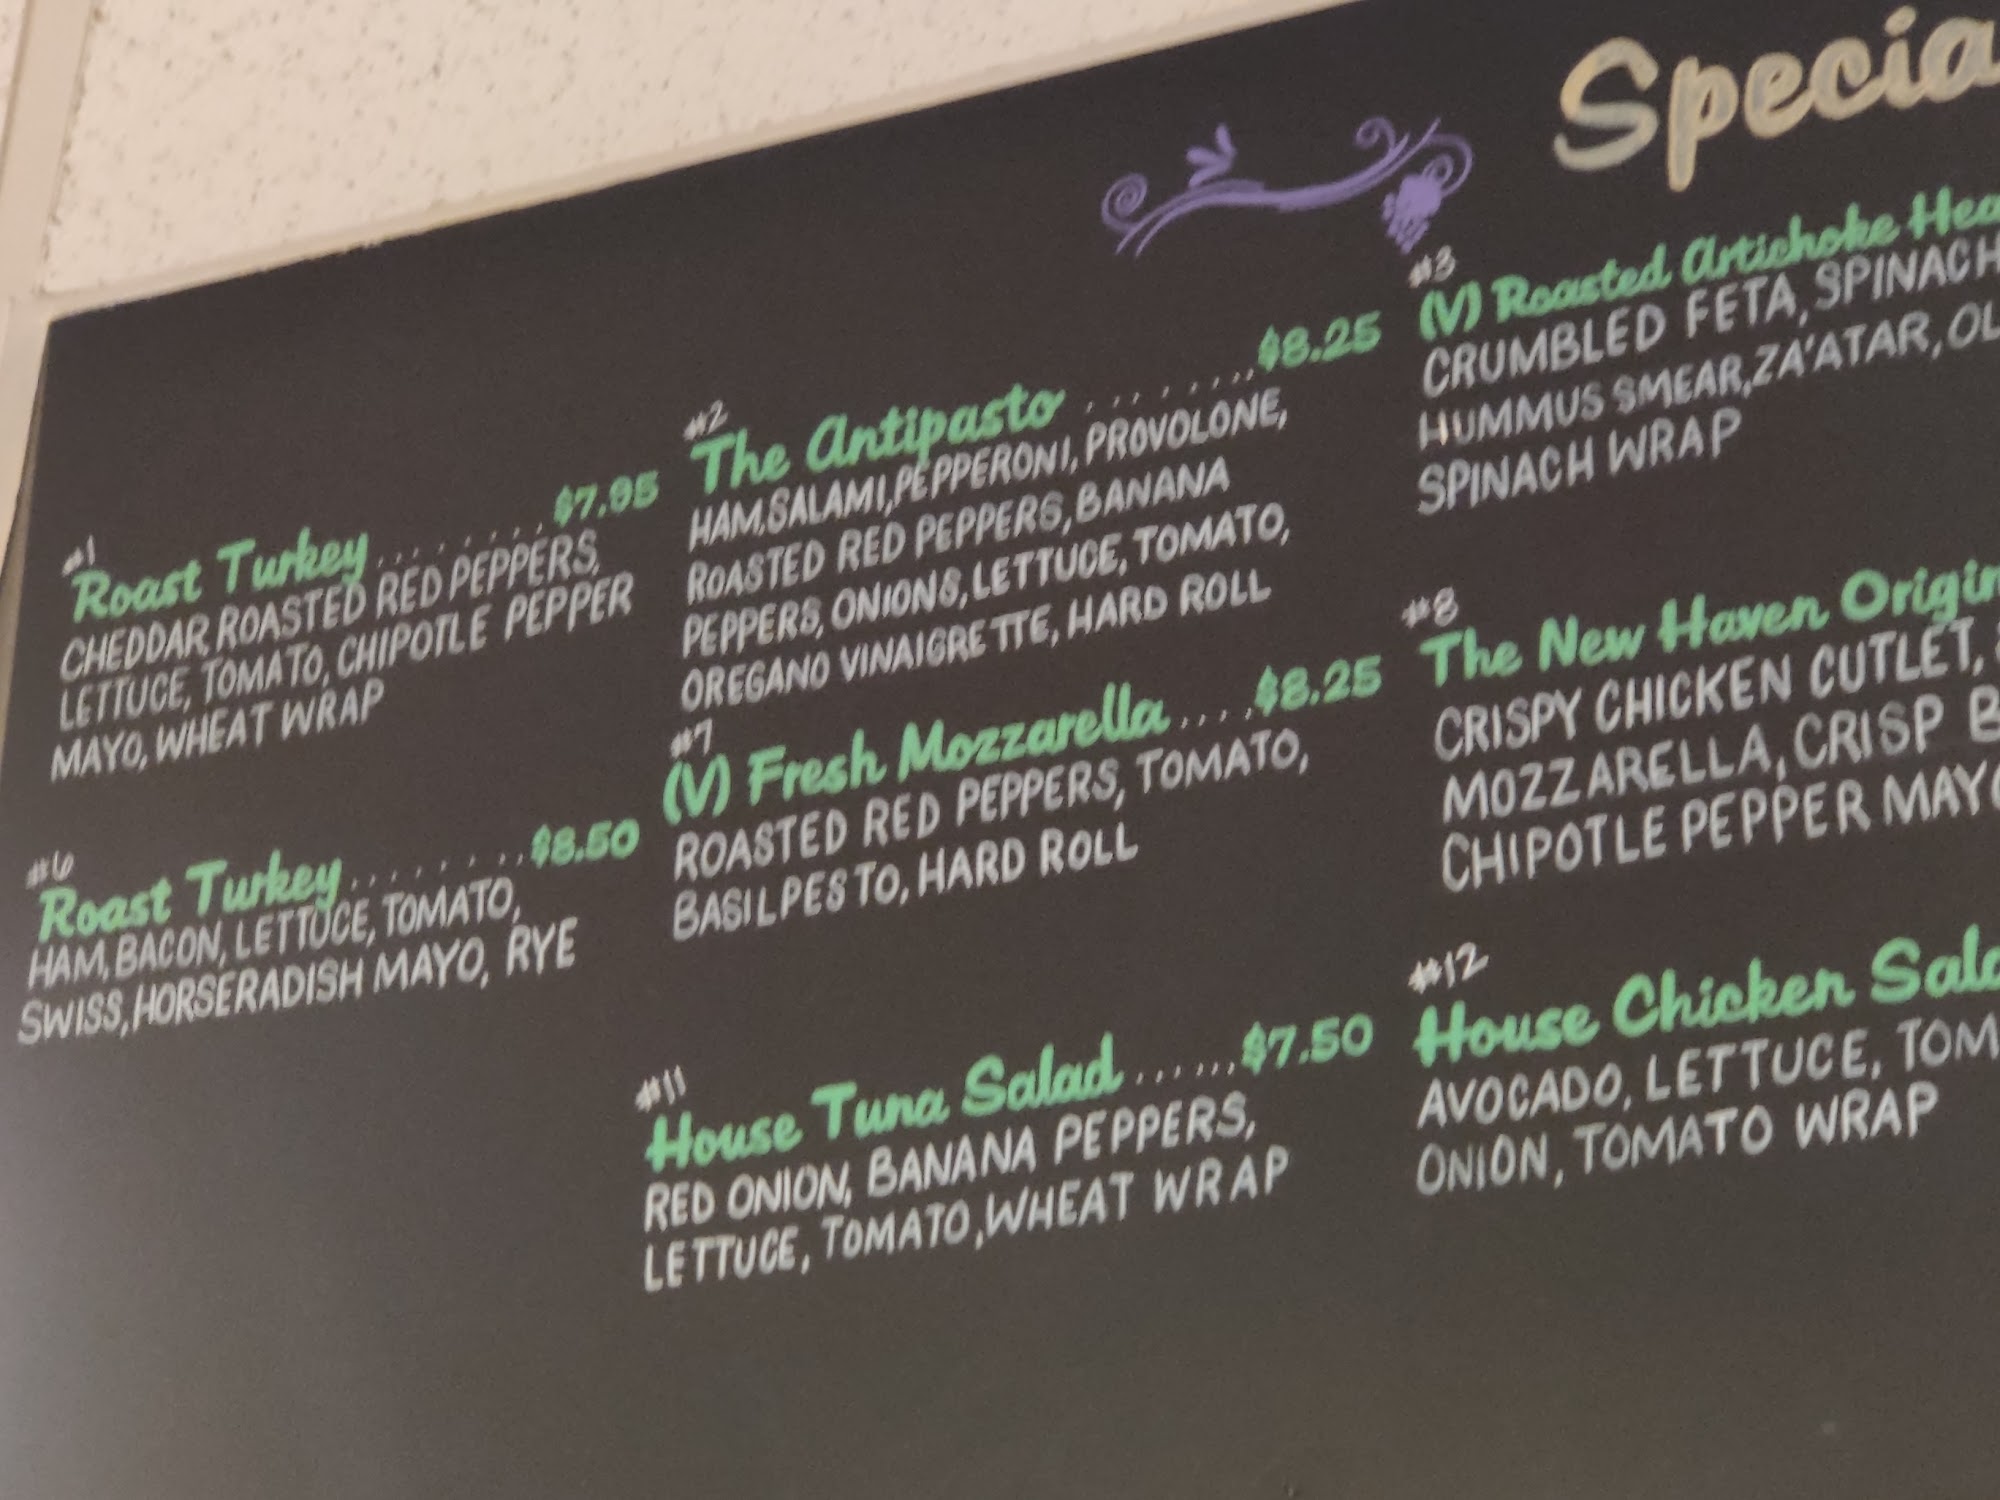 Specia
#1
Roast Turkey........$7.95
CHEDDAR, ROASTED RED PEPPERS,
LETTUCE, TOMATO, CHIPOTLE PEPPER
MAYO, WHEAT WRAP
#2
The Antipasto ........$8.25
HAM, SALAMI, PEPPERONI, PROVOLONE,
ROASTED RED PEPPERS, BANANA
PEPPERS, ONIONS, LETTUCE, TOMATO,
OREGANO VINAIGRETTE, HARD ROLL
#3
(V) Roasted Artichoke Hea
CRUMBLED FETA, SPINACH
HUMMUS SMEAR, ZA'ATAR, OL
SPINACH WRAP
#6
Roast Turkey........$8.50
HAM, BACON, LETTUCE, TOMATO,
SWISS, HORSERADISH MAYO, RYE
#7
(V) Fresh Mozzarella....$8.25
ROASTED RED PEPPERS, TOMATO,
BASIL PESTO, HARD ROLL
#8
The New Haven Origin
CRISPY CHICKEN CUTLET,
MOZZARELLA, CRISP B
CHIPOTLE PEPPER MAYO
#11
House Tuna Salad......$7.50
RED ONION, BANANA PEPPERS,
LETTUCE, TOMATO, WHEAT WRAP
#12
House Chicken Sala
AVOCADO, LETTUCE, TOM
ONION, TOMATO WRAP